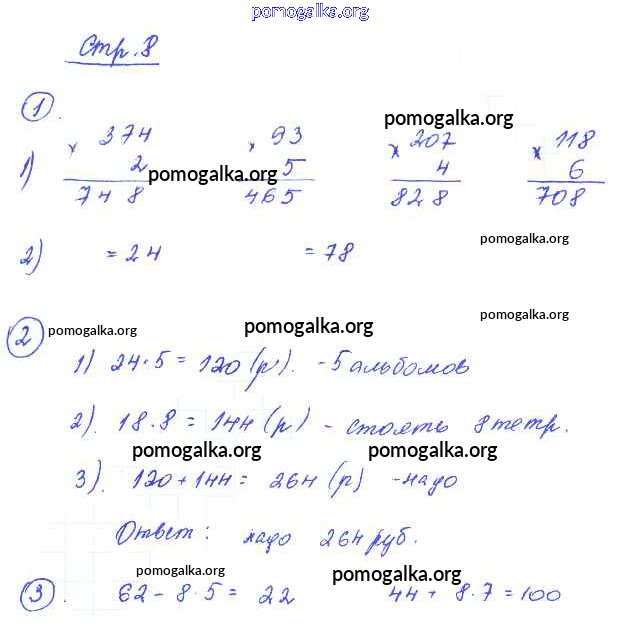 pomogalka.org
Стр. 8
1.
1) × 374 × 93 × 207 × 118
2 5 4 6
748 465 828 708
pomogalka.org pomogalka.org pomogalka.org pomogalka.org
2) = 24 = 78
pomogalka.org
2 pomogalka.org pomogalka.org pomogalka.org
1) 24·5 = 120 (р). - 5 альбомов
2). 18·8 = 144 (р) - стоять 8 тетр.
pomogalka.org pomogalka.org
3). 120 + 144 = 264 (р) - надо
Ответ: надо 264 руб.
pomogalka.org pomogalka.org
3. 62 - 8·5 = 22 44 + 8·7 = 100
pomogalka.org